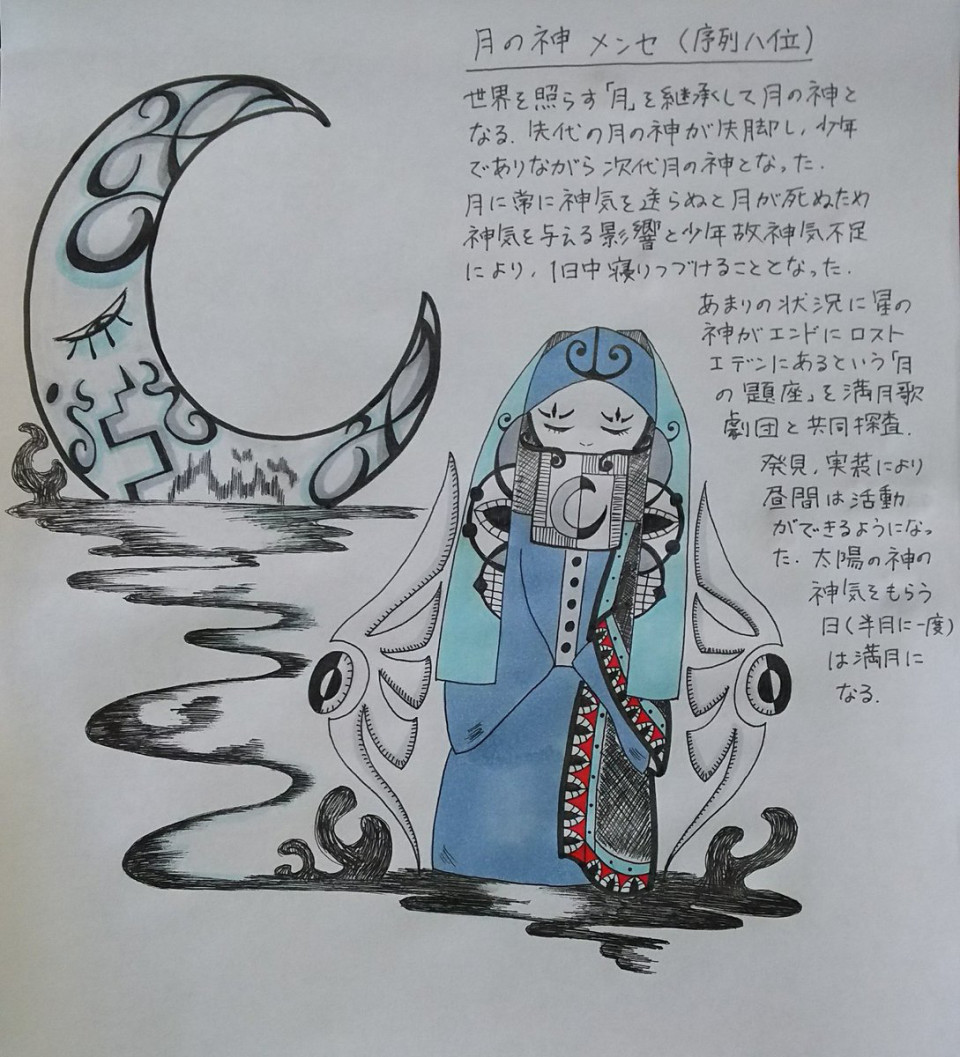 月の神 メンセ (序列八位)
世界を照らす「月」を継承して月の神と
なる. 先代の月の神が失脚し, 少年
でありながら次代月の神となった.
月に常に神気を送らぬと月が死ぬため
神気を与える影響と少年故神気不足
により, 1日中寝りつづけることとなった.
あまりの状況に星の
神がエンドにロスト
エデンにあるという「月
の題座」を満月歌
劇団と共同探査.
発見, 実装により
昼間は活動
ができるようになっ
た. 太陽の神の
神気をもらう
日(半月に一度)
は満月に
なる.